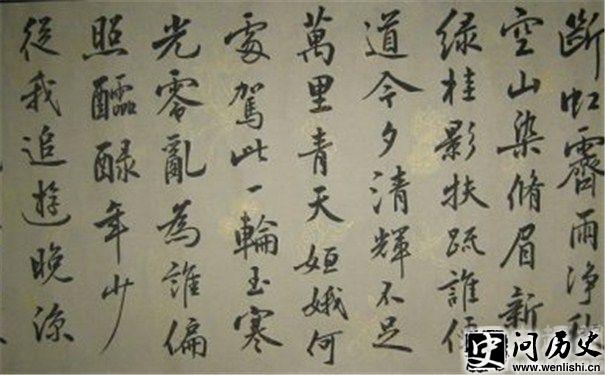 斷虹霽雨淨秋
空山染脩眉新
綠桂影扶疏誰便
道今夕清輝不足
萬里青天姮娥何
處駕此一輪玉寒
光零亂為誰偏
照醽醁年少
從我追遊晚涼
问历史
www.wenlishi.cn